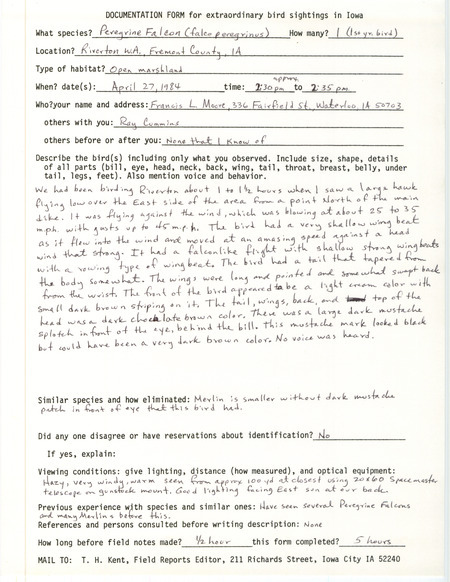 DOCUMENTATION FORM for extraordinary bird sightings in Iowa
What species? Peregrine Falcon (falco peregrinus) How many? 1 (1st yr. bird)
Location? Riverton W.A., Fremont County, IA
Type of habitat? Open marshland
When? date(s): April 27, 1984 time: approx. 2:30 pm to 2:35 pm
Who? your name and address: Francis L. Moore, 336 Fairfield St., Waterloo, IA 50703
others with you: Ray Cummins
others before or after you: None that I know of
Describe the bird(s) including only what you observed. Include size, shape, details
of all parts (bill, eye, head, neck, back, wing, tail, throat, breast, belly, under
tail, legs, feet). Also mention voice and behavior.
We had been birding Riverton about 1 to 1½ hours when I saw a large hawk
flying low over the East side of the area from a point North of the main
dike. It was flying against the wind, which was blowing at about 25 to 35
mph. with gusts up to 45 m.p.h. The bird had a very shallow wing beat
as it flew into the wind and moved at an amazing speed against a head
wind that strong. It had a falconlike flight with shallow strong wingbeats
with a rowing type of wingbeat. The bird had a tail that tapered from
the body somewhat. The wings were long and pointed and somewhat swept back
from the wrist. The front of the bird appeared to be a light cream color with
small dark brown striping on it. The tail, wings, back, and top of the
head was a dark chocolate brown color. There was a large dark mustache
splotch in front of the eye, behind the bill. This mustache mark looked black
but could have been a very dark brown color. No voice was heard.
Similar species and how eliminated: Merlin is smaller without dark mustache
patch in front of eye that this bird had.
Did any one disagree or have reservations about identification? No
If yes, explain:
Viewing conditions: give lighting, distance (how measured), and optical equipment:
Hazy, very windy, warm seen from approx 100 yd at closest using 20x60 Spacemaster
telescope on gunstock mount. Good lighting facing East sun at our back.
Previous experience with species and similar ones: Have seen several Peregrine Falcons
and many Merlins before this.
References and persons consulted before writing description: None
How long before field notes made? ½ hour this form completed? 5 hours
MAIL TO: T. H. Kent, Field Reports Editor, 211 Richards Street, Iowa City IA 52240